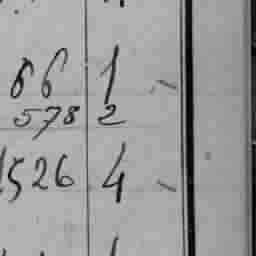 66 1
578 2
1526 4